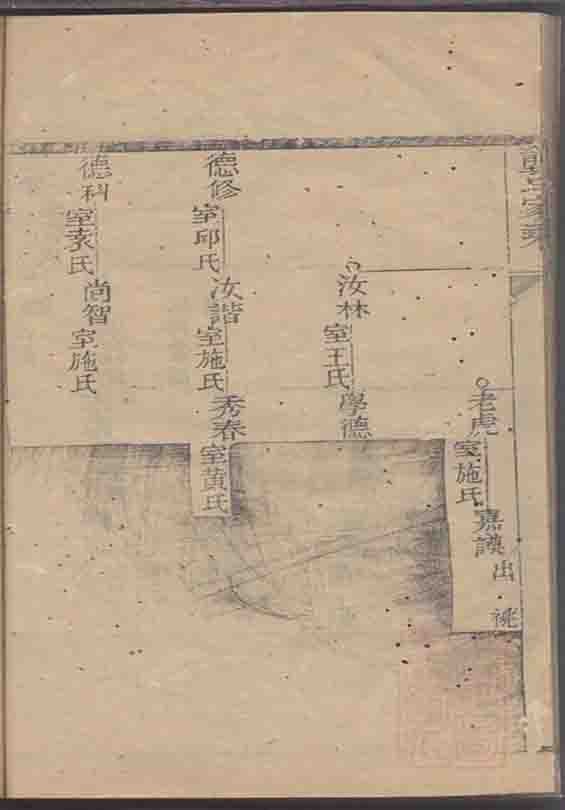 家乘
老虎
室施氏
嘉謨
出祧
汝林
室王氏
學德
德修
室邱氏
汝諧
室施氏
秀春
室黄氏
德科
室袁氏
尚智
室施氏